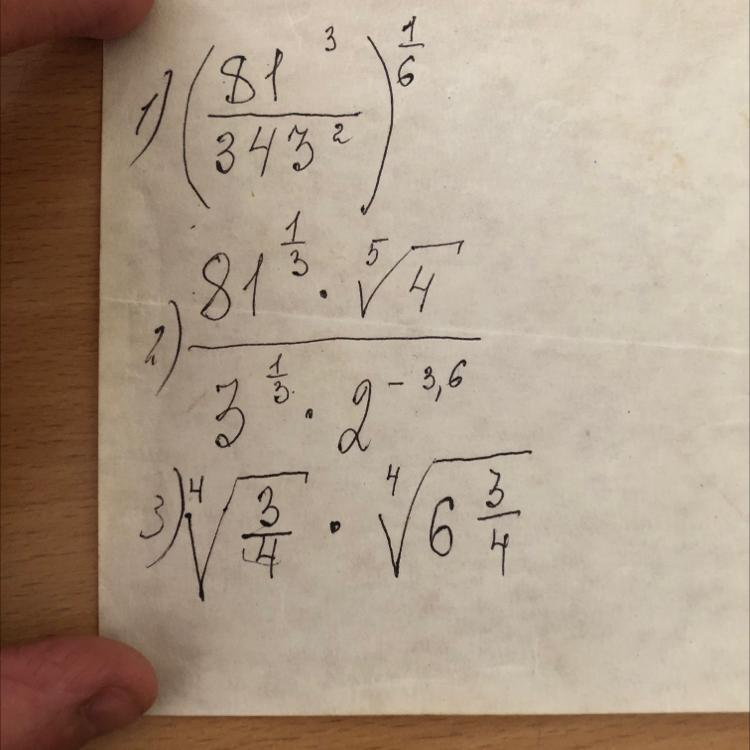 1) (81³/343²)^(1/6)
2) (81^(1/3) · ⁵√4)/(3^(1/3) · 2^(-3,6))
3) ⁴√(3/4) · ⁴√(6 3/4)